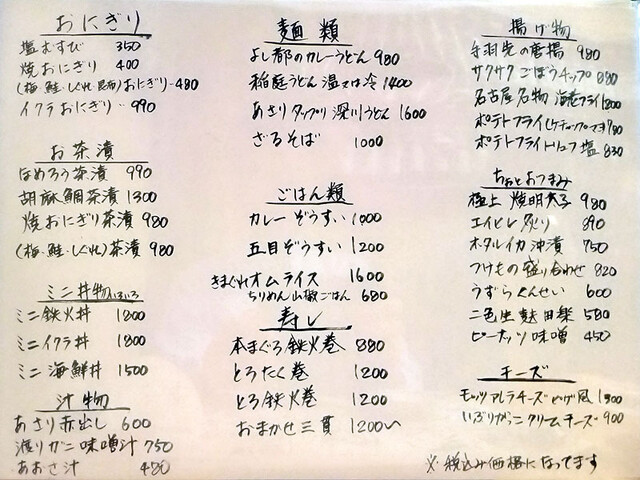 おにぎり
塩むすび 350
焼おにぎり 400
(梅・鮭・しぐれ 昆布)おにぎり 480
イクラおにぎり 990
お茶漬
ほめろう茶漬 990
胡麻鯛茶漬 1300
焼おにぎり茶漬 980
(梅・鮭・しぐれ)茶漬 980
ミニ丼物いろいろ
ミニ鉄火丼 1800
ミニイクラ丼 1800
ミニ海鮮丼 1500
汁物
あさり赤出し 600
渡りガニ味噌汁 750
あおさ汁 480
麺類
よし都のカレーうどん 980
稲庭うどん 温又は冷 1400
あさりタップリ深川うどん 1600
ざるそば 1000
ごはん類
カレーぞうすい 1000
五目ぞうすい 1200
きまぐれオムライス 1600
ちりめん山椒ごはん 680
寿し
本まぐろ鉄火巻 880
とろたく巻 1200
とろ鉄火巻 1200
おまかせ三貫 1200〜
揚げ物
手羽先の唐揚 980
サクサクごぼうチップ 880
名古屋名物 海老フライ 1200
ポテトフライ(ケチャップ マヨ) 780
ポテトフライトリュフ塩 830
ちょっとおつまみ
極上 焼明太子 980
エイヒレ炙り 890
ホタルイカ沖漬 750
つけもの盛り合わせ 820
うずらくんせい 600
二色生麩田楽 580
ピーナッツ味噌 450
チーズ
モッツアレラチーズ 1300
いぶりがっこクリームチーズ 900
※税込み価格になってます